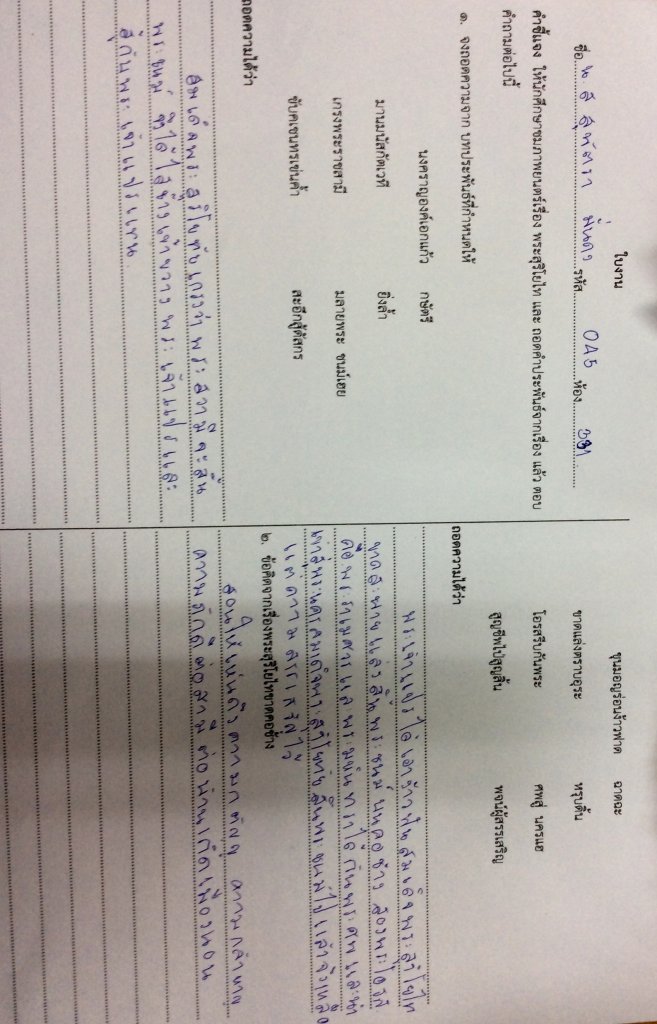 ใบงาน
ชื่อ น.ส สุพัตรา มั่นคง รหัส 045 ห้อง
คำชี้แจง ให้นักศึกษาชมภาพยนตร์เรื่อง พระสุริโยไท และ ถอดคำประพันธ์จากเรื่อง แล้ว ตอบ
คำถามต่อไปนี้
๑. จงถอดความจาก บทประพันธ์ที่กำหนดให้
นงคราญองค์เอกแก้ว กษัตรี
มานมนัสกัตเวที ยิ่งล้ำ
เกรงพระราชสามี มลายพระ ชนม์เฮย
ขับคเชนทรเข่นค้ำ สะอึกสู้ดัสกร
ถอดความได้ว่า
สมเด็จพระสุริโยทัยเกรงว่าพระสวามีจะสิ้น
พระชนม์ จึงได้ไสช้างเข้าขวาง พระเจ้าแปรและ
สู้กับพระเจ้าแปรแทน
ขุนมอญร่อนง้าวฟาด ฉาดฉะ
ขาดแล่งตราบอุระ หรุบดิ้น
โอรสรีบกันพระ ศพสู่ นครแฮ
สูญชีพไป่สูญสิ้น พจน์ผู้สรรเสริญ
ถอดความได้ว่า
พระเจ้าแปรได้เอาง้าวฟันสมเด็จพระสุริโยไท
ขาดสะพายแล่งสิ้นพระชนม์บนคอช้าง สองพระโอรส
คือพระราเมศวรและพระมหินทราได้กันพระศพและนำ
เข้าสู่พระนครสมเด็จพระสุริโยทัย สิ้นพระชนม์ไปแล้วจึงเหลือ
แต่ความสรรเสริญไว้
๒. ข้อคิดจากเรื่องพระสุริโยไทขาดคอช้าง
สอนให้เห็นถึงความกตัญญู ความกล้าหาญ
ความรักดีต่อสามี ต่อบ้านเกิดเมืองนอน